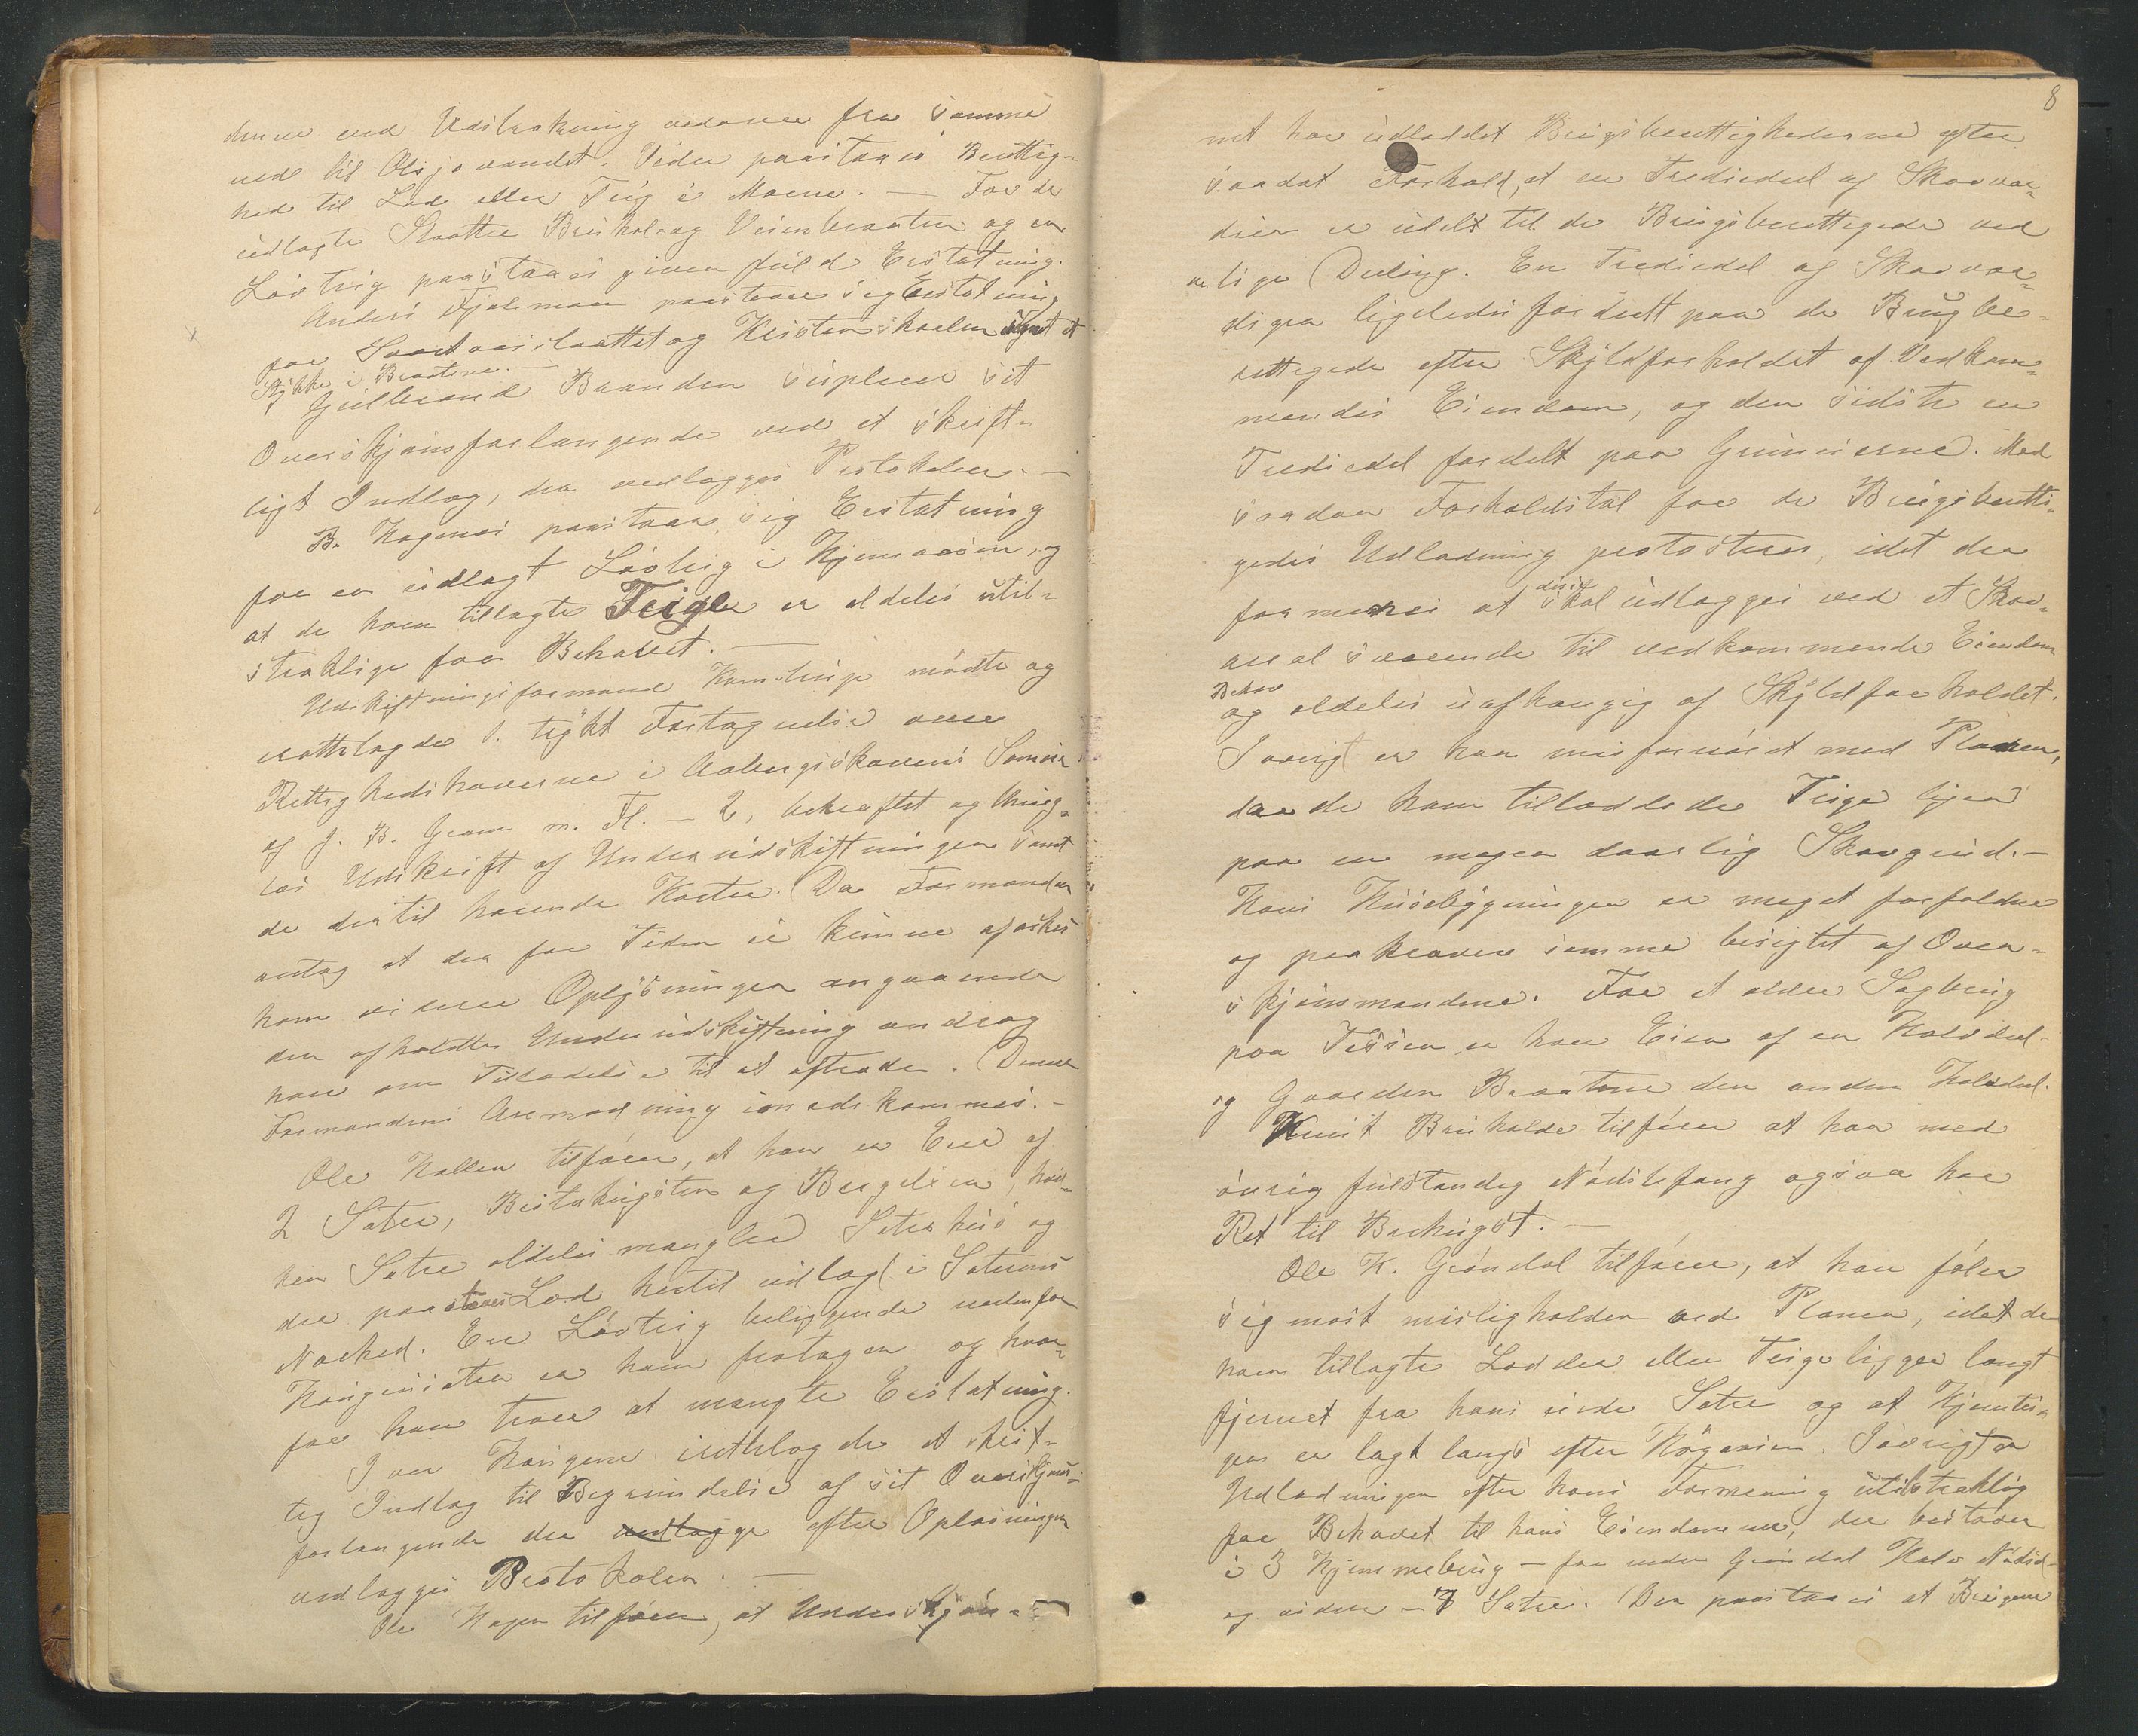 denne ved Udstrakning nedover fra samme
ned til Olsjovandet. Videre paastaaes Berettig-
hed til Lod eller Teig i Moene. — For de
udlagte Slaatter Bruhol og Veienbraaten og en
Løvteig paastaaes given fuld Erstatning.
Anders Fjalman paastaaer sig Erstatning
for Svartaasslaattet og Kristenskaalen samt et
Stykke i Braatene. —
Gulbrand Baanden supplerer sit
Overskjønsforlangende ved et skrift-
ligt Indlæg, der vedlægges Protokolen. —
B. Hagenes paastaar sig Erstatning
for en udlagt Løvteig i Hjemaasen, og
at de ham tillagte Teige er aldeles util-
stræklige for Behovet. —
Udskiftningsformand Kamstrup mødte og
rettelagde 1. trykt Fortegnelse over
Rettighedshaverne i Aabergsskovens Sameie
af J. B. Gram m. Fl. — 2, bekræftet og
Udskrift af Underudskiftningen samt
de dertil hørende Karter. Da Formanden
antog at der for Tiden ei kunne afæskes
ham videre Oplysninger angaaende
den afholdte Underudskiftning androg
han om Tilladelse til at aftræde. Denne
Formandens Anmodning imødekommes. —
Ole Hallen tilfører, at han er Eier af
2 Sætre, og Bergeli en, hvil-
ken Sæter aldeles mangler Sæterhus og
der paastaaes Lod hertil udlagt i Sæterens
Nærhed. En Løvteig beliggende nedenfor
er ham fratagen og hvor-
for han troer at mangle Erstatning.
Iver Haugene irettelagde et skrift-
lig Indlæg til Begrundelse af sit Overskjøns-
forlangende der efter Oplæsningen
vedlægges Protokolen. —
Ole Hagen tilfører, at Underskjøn-
8
net har udloddet Brugsberettighederne efter
saadat Forhold, at en Trediedel af Skovvær-
dien er udelt til de Brugsberettigede ved
lige Deling. En Trediedel af Skovvær-
digen ligeledes fordelt paa de Brugbe-
rettigede efter Skyldforholdet af Vedkom-
mendes Eiendom, og den sidste en
Trediedel fordelt paa Grunneierne. Mod
saadan Forholdstal for de Brugsberetti-
gedes Udlodning protesteres, idet der
formenes at disse skal udlægges ved et Skov-
areal svarende til vedkommende Eiendoms
Behov
og aldeles uafhængig af Skyldforholdet.
Iøvrigt er han misfornøiet med Planen,
da de ham tilloddede Teige ligger
paa en megen daarlig Skovgrund. —
Hans Husebygninger er meget forfaldne
og paakræver samme besigtet af Over-
skjønsmændene. For et ældre Sagbrug
paa Tessen er han Eier af en Halvdel
og Gaarden Braatene den anden Halvdel.
Knut Bruholde tilfører at han med
øvrig fulstændig Nødstefang ogsaa har
Ret til Bækugst. —
Ole K. Grøndal tilfører, at han føler
sig mest misligholden ved Planen, idet de
ham tillagte Lodder eller Teige ligger langt
fjernet fra hans eiede Sætre og at Hjemtei-
gen er lagt langs efter Høgaasen. Iøvrigt er
Udlodningen efter hans Formening utilstrækkelig
for Behovet til hans Eiendomme, der bestaaer
i 3 Hjemmebrug — for under Grøndal Halv
og videre — 7 Sætre. Der paastaaes at Brugene